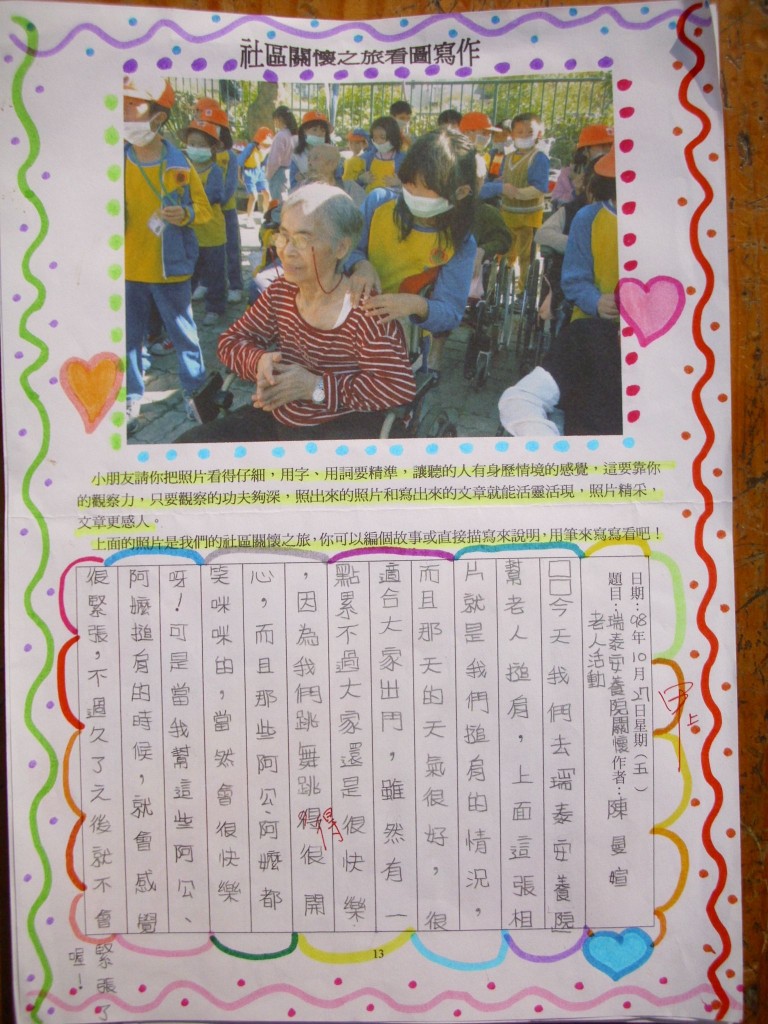 社區關懷之旅看圖寫作
小朋友請你把照片看得仔細，用字、用詞要精準，讓聽的人有身歷情境的感覺，這要靠你
的觀察力，只要觀察的功夫夠深，照出來的照片和寫出來的文章就能活靈活現，照片精采，
文章更感人。
上面的照片是我們的社區關懷之旅，你可以編個故事或直接描寫來說明，用筆來寫寫看吧！
日期：98年10月27日星期（五）
題目：瑞泰安養院關懷作者：陳曼暄
老人活動
甲上
□□今天我們去「瑞泰安養院」
幫老人搥肩，上面這張相
片就是我們搥肩的情況，
而且那天的天氣很好，很
適合大家出門，雖然有一
點累不過大家還是很快樂
，因為我們跳舞跳得很開
得
心，而且那些阿公、阿嬤都
笑咪咪的，當然會很快樂
呀！可是當我幫這些阿公、
阿嬤搥肩的時候，就會感覺
很緊張，不過久了之後就不會緊張了
喔！
13